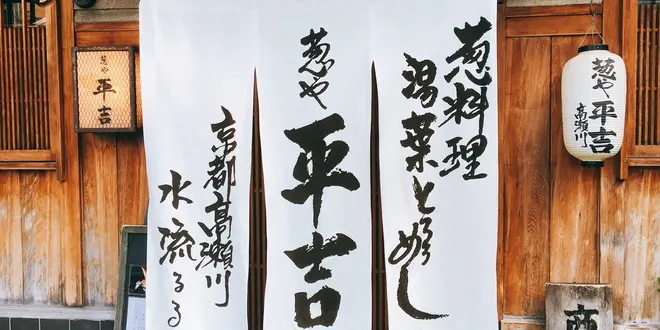 葱料理
湯葉と
葱や
平吉
京都高瀬川
水流るる
葱や
平吉
高瀬川
葱や
平吉
高瀬川
商